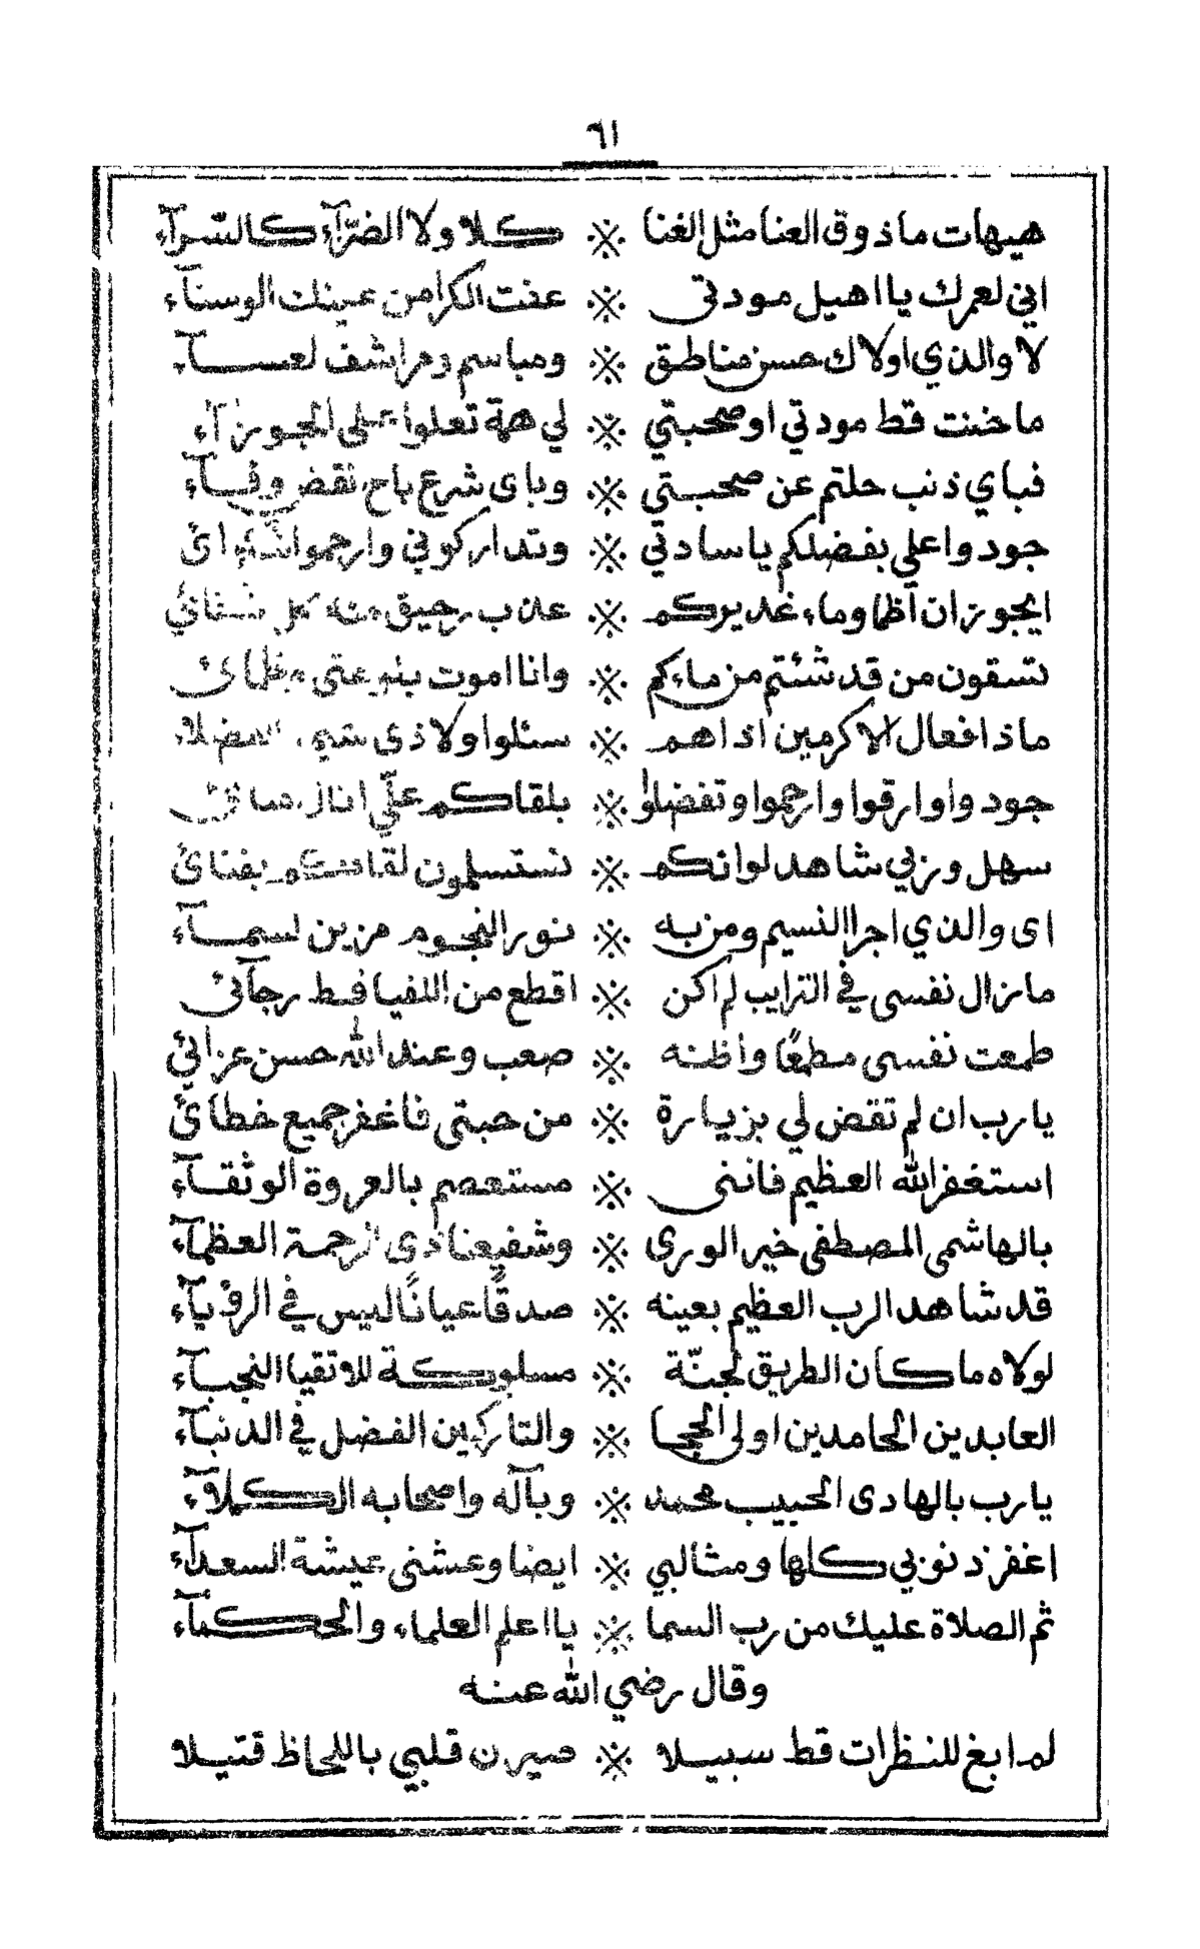 ٦١
هيهات ماذوق العنا مثل الغنا ※ كلا ولا الضرّآء كالسّرآء
اني لعمرك يا اهيل مودتى ※ عفت الكرا من عينك الوسنآء
لا والذي اولاك حسن مناطق ※ ومباسم ومراشف لعسآء
ما خنت قط مودتي او صحبتي ※ لي همة تعلوا على الجوزآء
فباي ذنب حلتم عن صحبتي ※ وباى شرع باح نقض وفآء
جودوا علي بفضلكم يا سادتي ※ وتداركوني وارحموا
ايجوز ان اظما وماء غديركم ※ عذب رحيق منه كل شفائي
تسقون من قد شئتم من ماءكم ※ وانا اموت بلوعتى وظمائ
ماذا فعال الاكرمين اذا هم ※ سئلوا ولاذى شيم
جودوا وارقوا وارحموا وتفضلوا ※ بلقاكم علّي انال
سهل وربي شاهد لوانكم ※ تستسلمون لقائكم بفنائ
اى والذي اجرا النسيم ومن به ※ نور النجوم مزين لسمآء
مازال نفسى في الترايب لم اكن ※ اقطع من اللقيا فط رجآئ
طمعت نفسى مطمعًا واظنه ※ صعب وعند الله حسن عزائي
يا رب ان لم تقض لي بزيارة ※ من حبتى فاغفر جميع خطائ
استغفر الله العظيم فاننى ※ مستعصم بالعروة الوثقآء
بالهاشمى المصطفى خير الورى ※ وشفيعنا ذى الرحمة العظمآء
قد شاهد الرب العظيم بعينه ※ صدقًا عيانًا ليس في الرؤيآء
لولاه ما كان الطريق لجنّة ※ مسلوكة للاتقيا النجبآء
العابدين الحامدين اولى الحجا ※ والتاركين الفضل في الدنيآء
يا رب بالهادى الحبيب محمد ※ وبآله واصحابه الكملآء
اغفر ذنوبي كلها ومثالبي ※ ايضا وعشنى عيشة السعدآء
ثم الصلاة عليك من رب السما ※ يا اعلم العلماء والحكمآء
وقال رضي الله عنه
لم ابغ للنظرات قط سبيلا ※ صيرن قلبي باللحاظ قتيلا